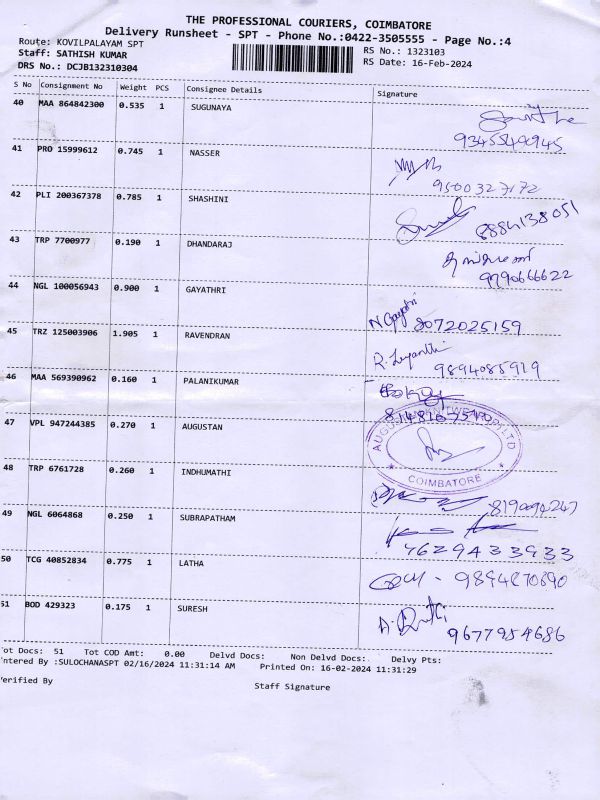 THE PROFESSIONAL COURIERS, COIMBATORE
Delivery Runsheet - SPT - Phone No.:0422-3505555 - Page No.:4
Route: KOVILPALAYAM SPT
RS No.: 1323103
Staff: SATHISH KUMAR
RS Date: 16-Feb-2024
DRS No.: DCJB132310304
S No Consignment No Weight PCS Consignee Details Signature
40 MAA 864842300 0.535 1 SUGUNAYA
41 PRO 15999612 0.745 1 NASSER
9500327172
42 PLI 200367378 0.785 1 SHASHINI
8884138051
43 TRP 7700977 0.190 1 DHANDARAJ
9790666622
44 NGL 100056943 0.900 1 GAYATHRI
N Gayatri 8072025159
45 TRZ 125003906 1.905 1 RAVENDRAN
9894085919
46 MAA 569390962 0.160 1 PALANIKUMAR
47 VPL 947244385 0.270 1 AUGUSTAN
COIMBATORE
48 TRP 6761728 0.260 1 INDHUMATHI
8190094247
49 NGL 6064868 0.250 1 SUBRAPATHAM
9629433933
50 TCG 40852834 0.775 1 LATHA
51 BOD 429323 0.175 1 SURESH
9677954686
Tot Docs: 51 Tot COD Amt: 0.00 Delvd Docs: Non Delvd Docs: Delvy Pts:
ntered By :SULOCHANASPT 02/16/2024 11:31:14 AM Printed On: 16-02-2024 11:31:29
erified By Staff Signature